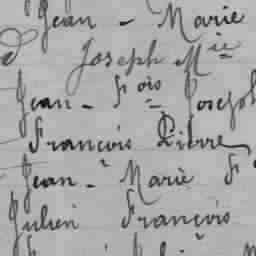 Jean - Marie
Joseph Mie
Jean - Fois Joseph
François Pierre
Jean - Marie F
Julien François